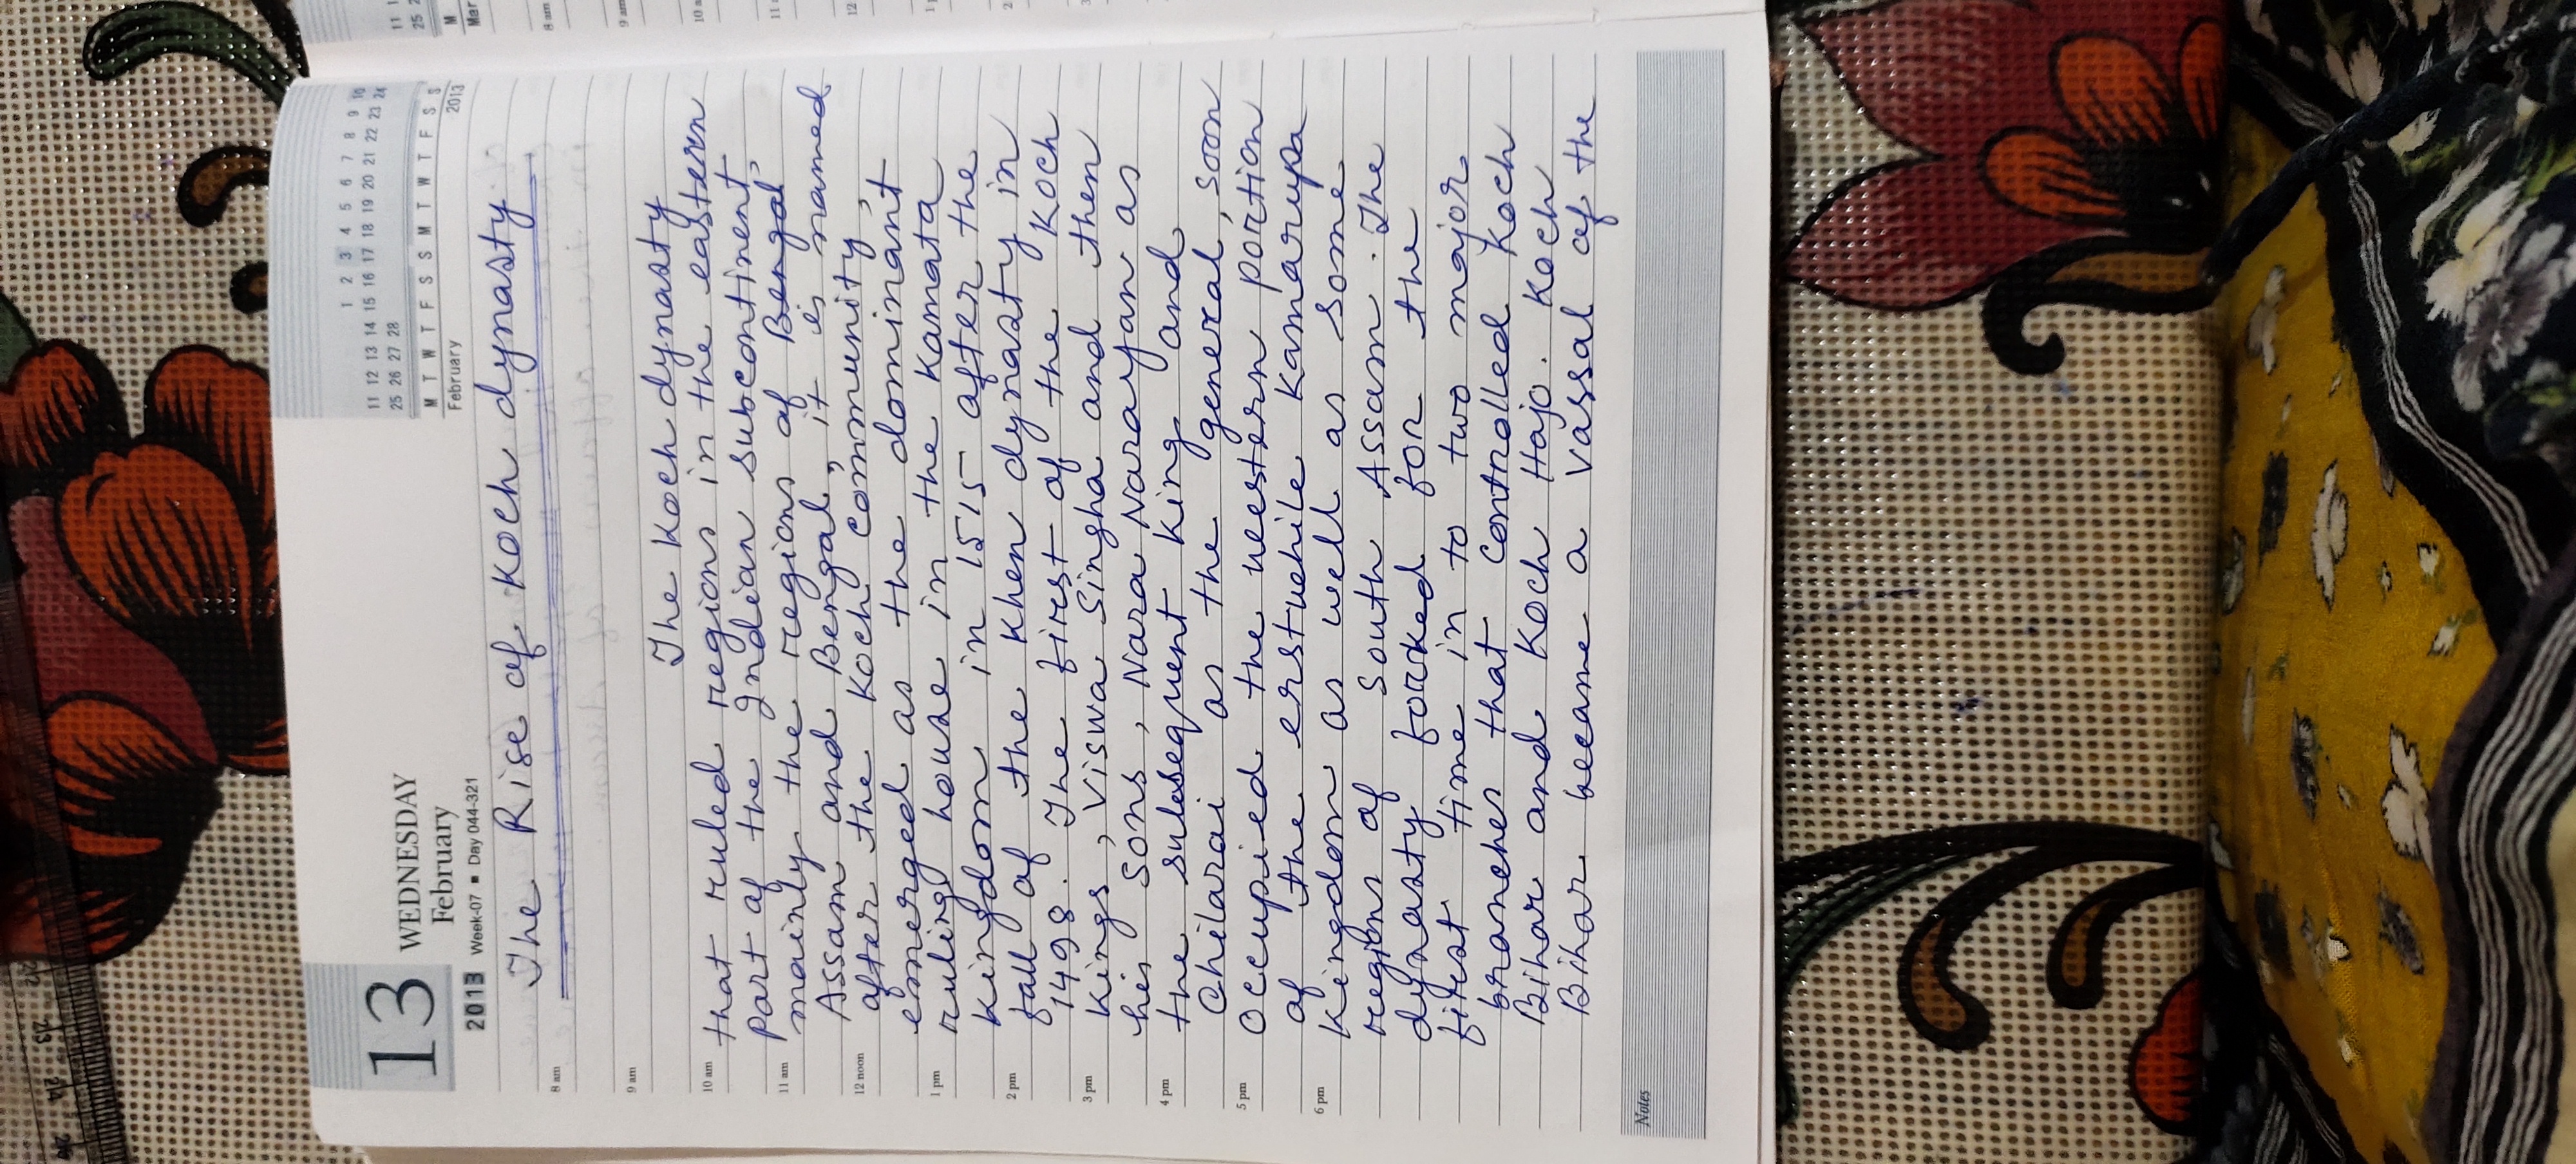 13
WEDNESDAY
February
2013 Week-07 ■ Day 044-321
1 2 3 4 5 6 7 8 9 10
11 12 13 14 15 16 17 18 19 20 21 22 23 24
25 26 27 28
M T W T F S S M T W T F S S
February 2013
The Rise of Koch dynasty
8 am
9 am
The Koch dynasty
10 am
that ruled regions in the eastern
part of the Indian subcontinent,
11 am
mainly the regions of Bengal
Assam and Bengal, it is named
12 noon
after the Koch community,
emerged as the dominant
1 pm
ruling house in the Kamata
kingdom in 1515 after the
2 pm
fall of the Khen dynasty in
1498. The first of the Koch
3 pm
kings, Viswa Singha and then
his sons, Nara Narayan as
4 pm
the subsequent king and
Chilarai as the general, soon
5 pm
Occupied the western portion
of the erstwhile Kamarupa
6 pm
Kingdom as well as some
regions of South Assam. The
dynasty forked for the
first time in to two major
branches that controlled Koch
Bihar and Koch Hajo. Koch
Bihar became a vassal of the
Notes